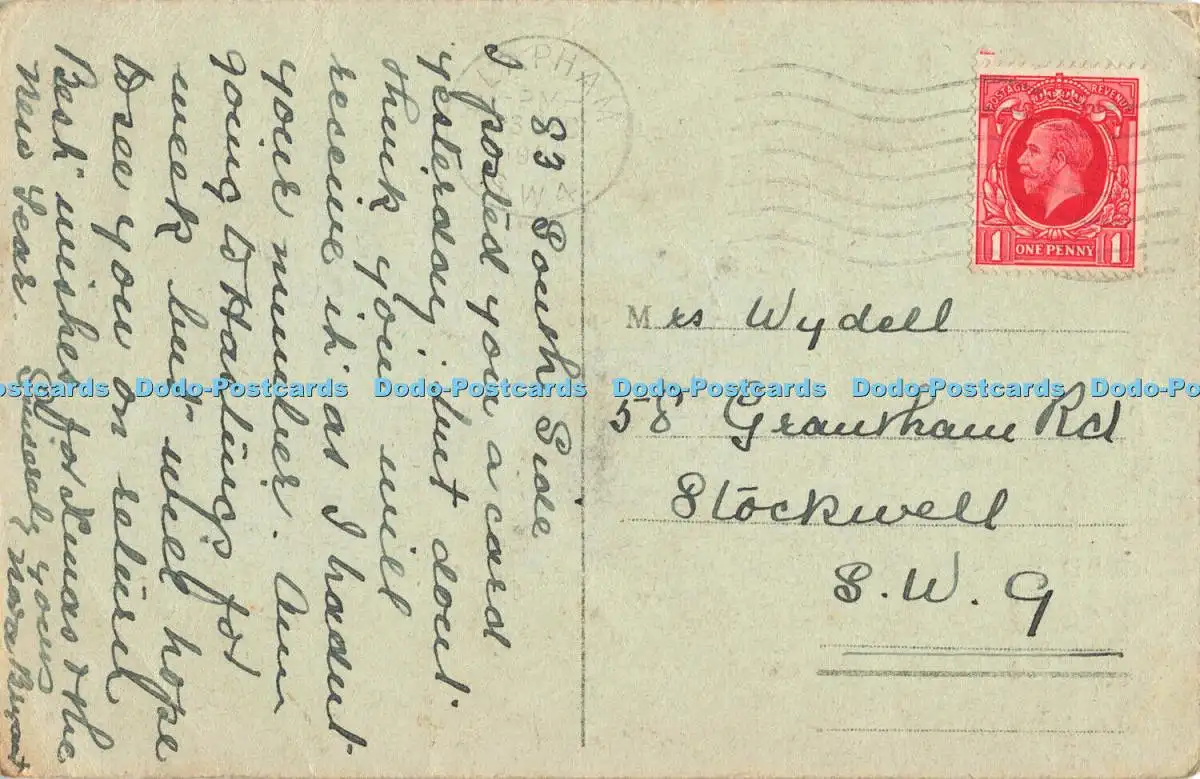 83 South Side
I posted you a card
yesterday, but dont
think you will
receive it as I hadent
your number. Am
going to Hastings for
week but will hope
to see you on return
Best wishes for Xmas & the
New Year.
Sincerely yours
Nora Bryant
CLAPHAM
S.W.4
POSTAGE REVENUE
1 ONE PENNY 1
Mrs Wydell
58 Grantham Rd
Stockwell
S.W.9
Dodo-Postcards Dodo-Postcards Dodo-Postcards Dodo-Postcards Dodo-Postcards